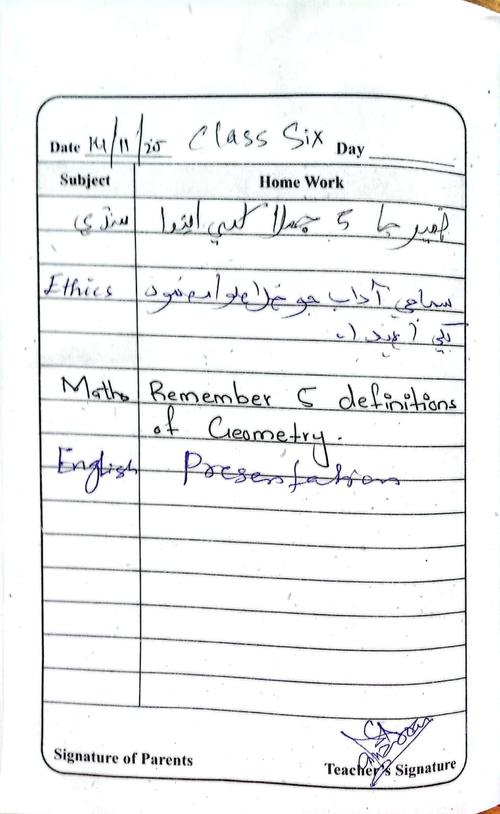 Date 14/11/25 Class Six Day
Subject Home Work
سنڌي ضمير جا 5 جملا لکي اچڻا
Ethics سماجي آداب جو
کڻي اچڻ
Maths Remember 5 definitions
of Geometry.
English Presentation
Signature of Parents Teacher's Signature